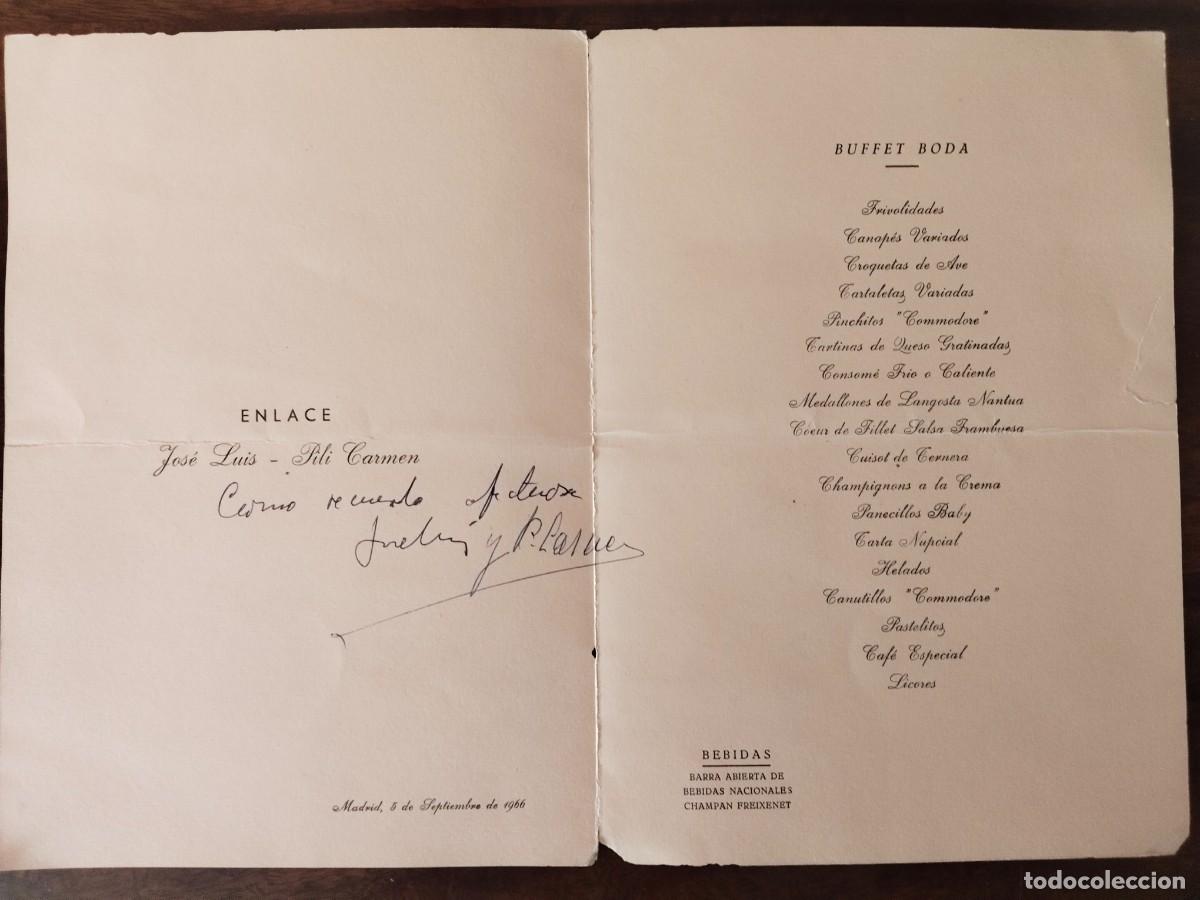 ENLACE
José Luis - Pili Carmen
Como recuerdo afectuoso
José Luis y P. Carmen
Madrid, 5 de Septiembre de 1966
BUFFET BODA
Frivolidades
Canapés Variados
Croquetas de Ave
Tartaletas Variadas
Pinchitos "Commodore"
Tartinas de Queso Gratinadas
Consomé Frio o Caliente
Medallones de Langosta Nantua
Coeur de Fillet Salsa Frambuesa
Cuisot de Ternera
Champignons a la Crema
Panecillos Baby
Tarta Nupcial
Helados
Canutillos "Commodore"
Pastelitos
Café Especial
Licores
BEBIDAS
BARRA ABIERTA DE
BEBIDAS NACIONALES
CHAMPAN FREIXENET
todocoleccion